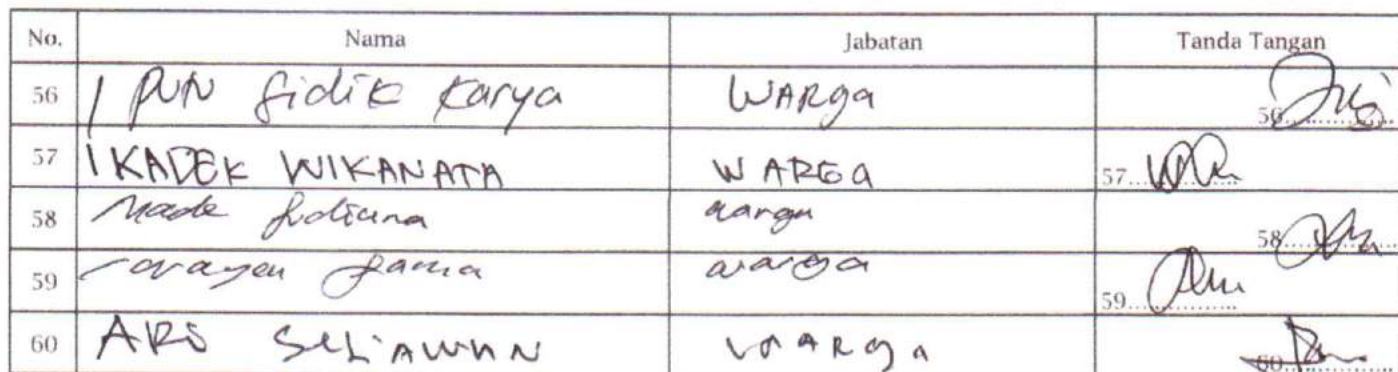 No. Nama Jabatan Tanda Tangan
56 I PUN Sidik Karya WARga 56
57 I KADEK WIKANATA WARGa 57
58 Made Sudiana warga 58
59 wayan Sama warga 59
60 ARi SeTiAWAN WARga 60